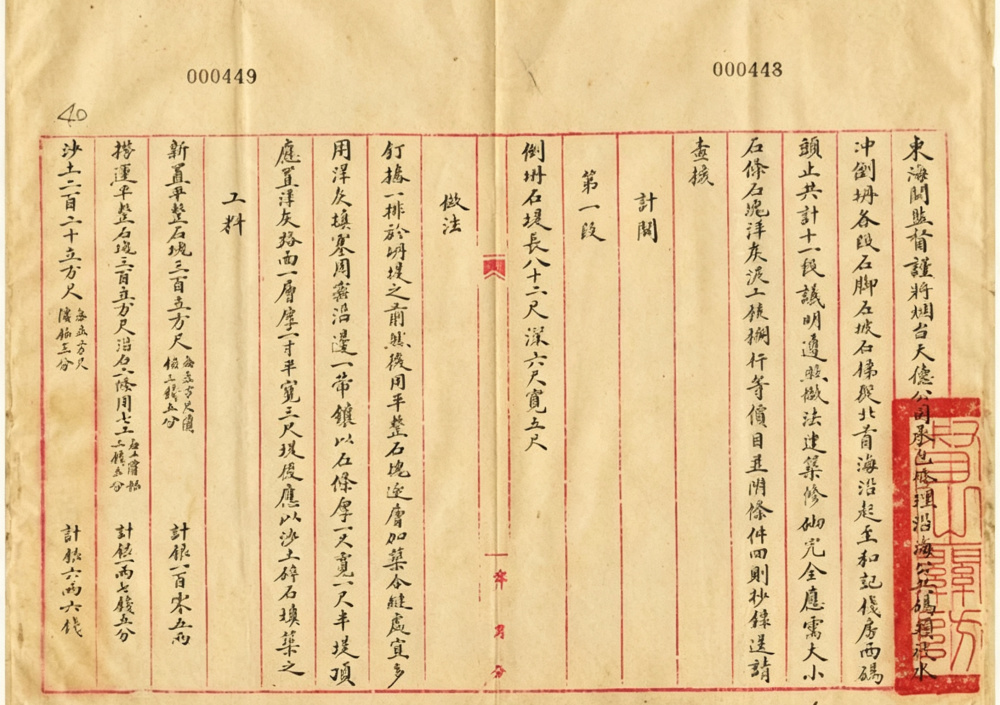 000448
000449
40
東海關監督謹將烟台天德公司承包修理沿海公共碼頭被水
冲倒坍各段石腳石坡石梯從北首海沿起至和記棧房西碼
頭止共計十一段議明遵照做法建築修砌完全應需大小
石條石塊洋灰泥工樁橛行等價目並附條件四則抄錄送請
查核
計開
第一段
倒坍石堤長八十二尺深六尺寬五尺
做法
釘樁一排於坍堤之前然後用平整石塊逐層加築合縫處宜多
用洋灰填塞周密沿邊一帶鑲以石條厚一尺寬一尺半堤頂
應置洋灰路面一層厚一寸半寬三尺堤後應以沙土碎石填築之
工料
新置平整石塊三百立方尺 每立方尺價 計銀一百零五兩
撈運平整石塊三百立方尺沿石六條用七工 計銀一兩七錢五分
沙土二百二十立方尺 每立方尺 價銀三分 計銀六兩六錢
年 月 分